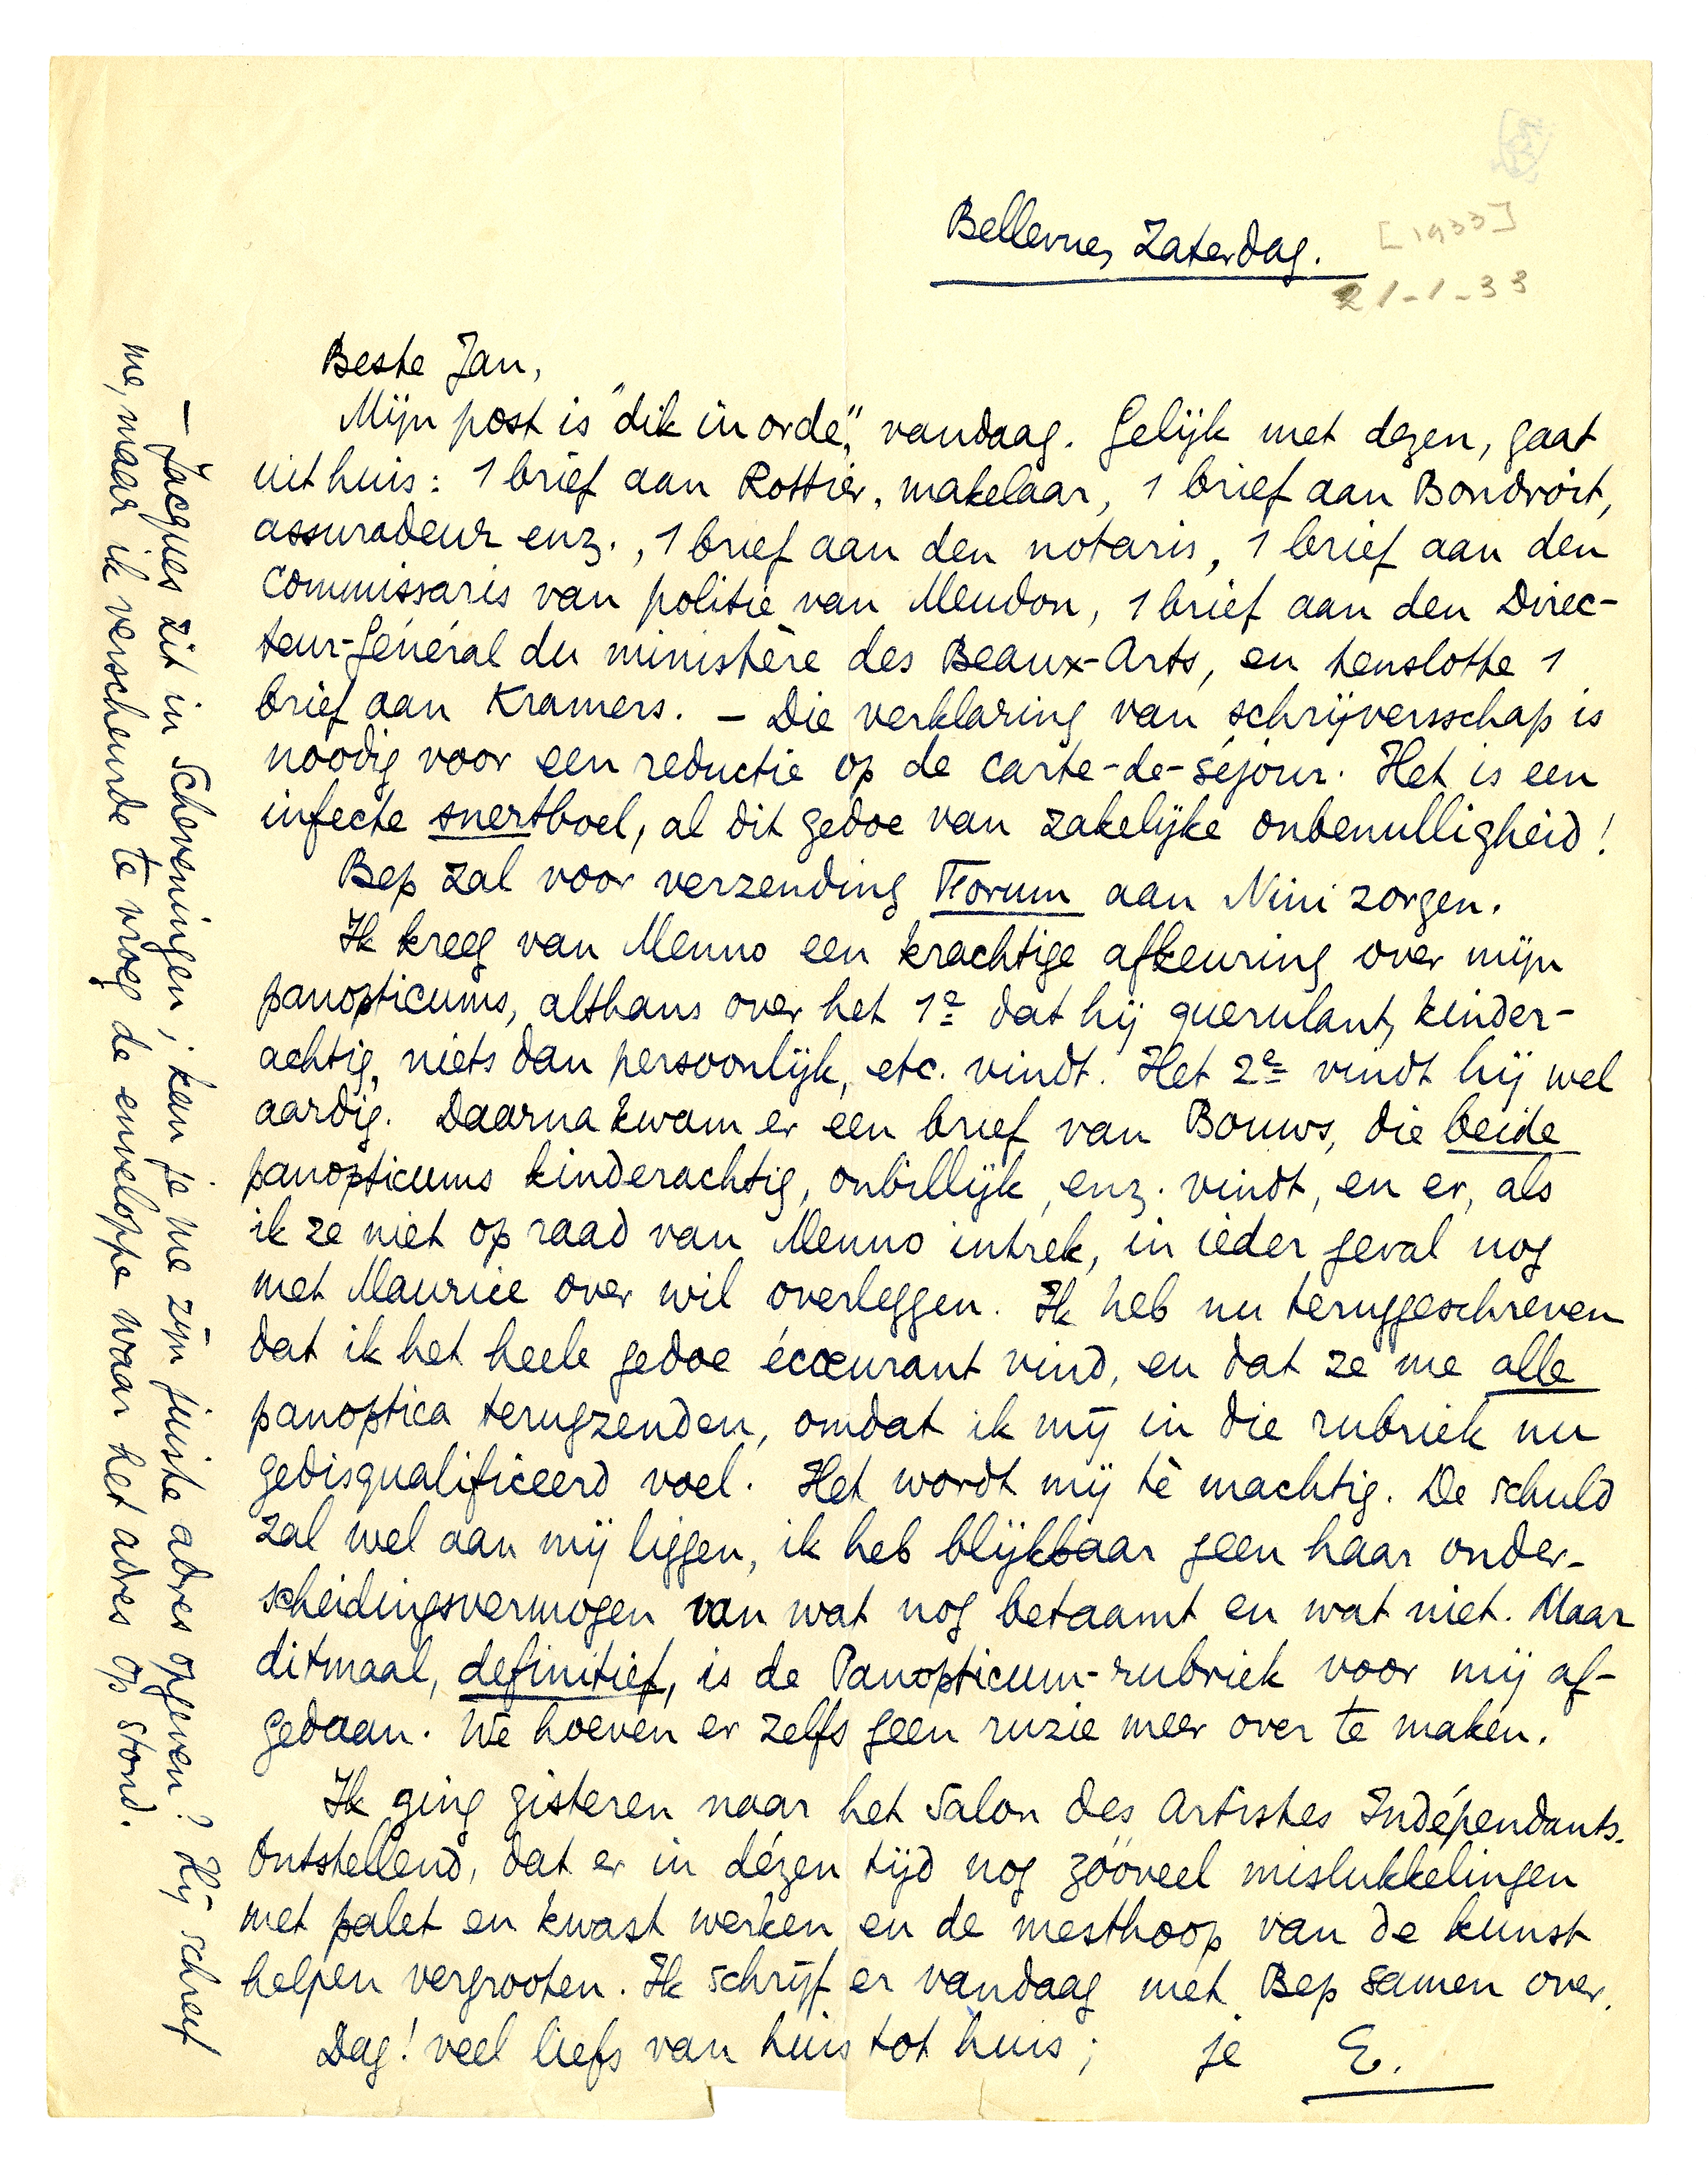 Bellevue, Zaterdag.
[1933]
21-1-33
Beste Jan,
Mijn post is "dik in orde", vandaag. Gelijk met dezen, gaat
uit huis: 1 brief aan Rottier, makelaar, 1 brief aan Bondroit,
assuradeur enz., 1 brief aan den notaris, 1 brief aan den
commissaris van politie van Meudon, 1 brief aan den Direc-
teur-Général du ministère des Beaux-Arts, en tenslotte 1
brief aan Kramers. – Die verklaring van schrijversschap is
noodig voor een reductie op de carte-de-séjour. Het is een
infecte snertboel, al dit gedoe van zakelijke onbenulligheid!
Bep zal voor verzending Forum aan Nini zorgen.
Ik kreeg van Menno een krachtige afkeuring over mijn
panopticums, althans over het 1e dat hij querulant, kinder-
achtig, niets dan persoonlijk, etc. vindt. Het 2e vindt hij wel
aardig. Daarna kwam er een brief van Bouws, die beide
panopticums kinderachtig, onbillijk, enz. vindt, en er, als
ik ze niet op raad van Menno intrek, in ieder geval nog
met Maurice over wil overleggen. Ik heb nu teruggeschreven
dat ik het heele gedoe écœurant vind, en dat ze me alle
panoptica terugzenden, omdat ik mij in die rubriek nu
gedisqualificeerd voel. Het wordt mij tè machtig. De schuld
zal wel aan mij liggen, ik heb blijkbaar geen haar onder-
scheidingsvermogen van wat nog betaamt en wat niet. Maar
ditmaal, definitief, is de Panopticum-rubriek voor mij af-
gedaan. We hoeven er zelfs geen ruzie meer over te maken.
Ik ging gisteren naar het Salon des Artistes Indépendants.
Ontstellend, dat er in dézen tijd nog zóóveel mislukkelingen
met palet en kwast werken en de mesthoop van de kunst
helpen vergrooten. Ik schrijf er vandaag met Bep samen over.
Dag! veel liefs van huis tot huis; je E.
– Jacques zit in Scheveningen; kan je me zijn juiste adres opgeven? Hij schreef
me, maar ik verscheurde te vroeg de enveloppe waar het adres op stond.